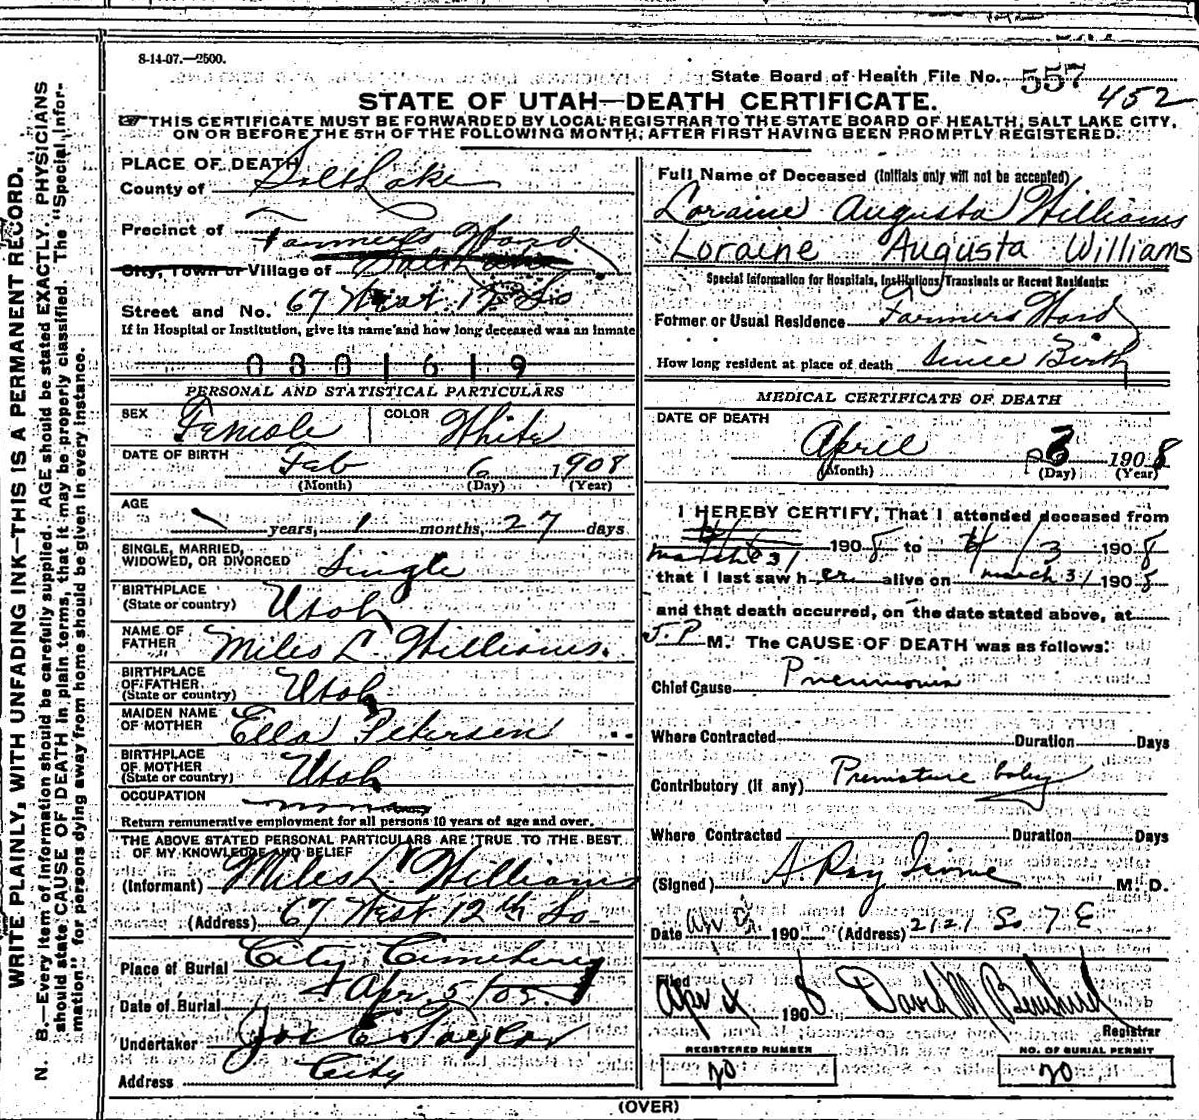 8-14-07.—2500.
State Board of Health File No. 557
452
STATE OF UTAH—DEATH CERTIFICATE.
THIS CERTIFICATE MUST BE FORWARDED BY LOCAL REGISTRAR TO THE STATE BOARD OF HEALTH, SALT LAKE CITY,
ON OR BEFORE THE 5TH OF THE FOLLOWING MONTH, AFTER FIRST HAVING BEEN PROMPTLY REGISTERED.
WRITE PLAINLY, WITH UNFADING INK—THIS IS A PERMANENT RECORD.
N. B.—Every item of information should be carefully supplied. AGE should be stated EXACTLY. PHYSICIANS
should state CAUSE OF DEATH in plain terms, that it may be properly classified. The "Special Infor-
mation" for persons dying away from home should be given in every instance.
PLACE OF DEATH
County of Salt Lake
Precinct of
Farmers Ward
City, Town or Village of
Street and No. 67 West 12 So
If in Hospital or Institution, give its name and how long deceased was an inmate
0301619
PERSONAL AND STATISTICAL PARTICULARS
SEX Female COLOR White
DATE OF BIRTH Feb 6 1908
(Month) (Day) (Year)
AGE
years, 1 months, 27 days
SINGLE, MARRIED,
WIDOWED, OR DIVORCED Single
BIRTHPLACE
(State or country) Utah
NAME OF
FATHER Miles L. Williams.
BIRTHPLACE
OF FATHER
(State or country) Utah
MAIDEN NAME
OF MOTHER Ella Petersen
BIRTHPLACE
OF MOTHER
(State or country) Utah
OCCUPATION
Return remunerative employment for all persons 10 years of age and over.
THE ABOVE STATED PERSONAL PARTICULARS ARE TRUE TO THE BEST
OF MY KNOWLEDGE AND BELIEF
(Informant) Miles L Williams
(Address) 67 West 12th So
Place of Burial City Cemetery
Date of Burial Apr. 5/08.
Undertaker Jos E Taylor
Address City
Full Name of Deceased (Initials only will not be accepted)
Loraine Augusta Williams
Loraine Augusta Williams
Special Information for Hospitals, Institutions, Transients or Recent Residents:
Former or Usual Residence Farmers Ward
How long resident at place of death Since Birth
MEDICAL CERTIFICATE OF DEATH
DATE OF DEATH
April 3 1908
(Month) (Day) (Year)
I HEREBY CERTIFY, That I attended deceased from
March 31 1908 to 4/3 1908
that I last saw her alive on March 31 1908
and that death occurred, on the date stated above, at
P M. The CAUSE OF DEATH was as follows:
Chief Cause Pneumonia
Where Contracted Duration Days
Contributory (if any) Premature baby
Where Contracted Duration Days
(Signed) A. Ray Irvine M. D.
Date Apr 190 (Address) 2121 So 7 E
Filed
Apr 4 1908 David M
Registrar
REGISTERED NUMBER NO. OF BURIAL PERMIT
70 70
(OVER)